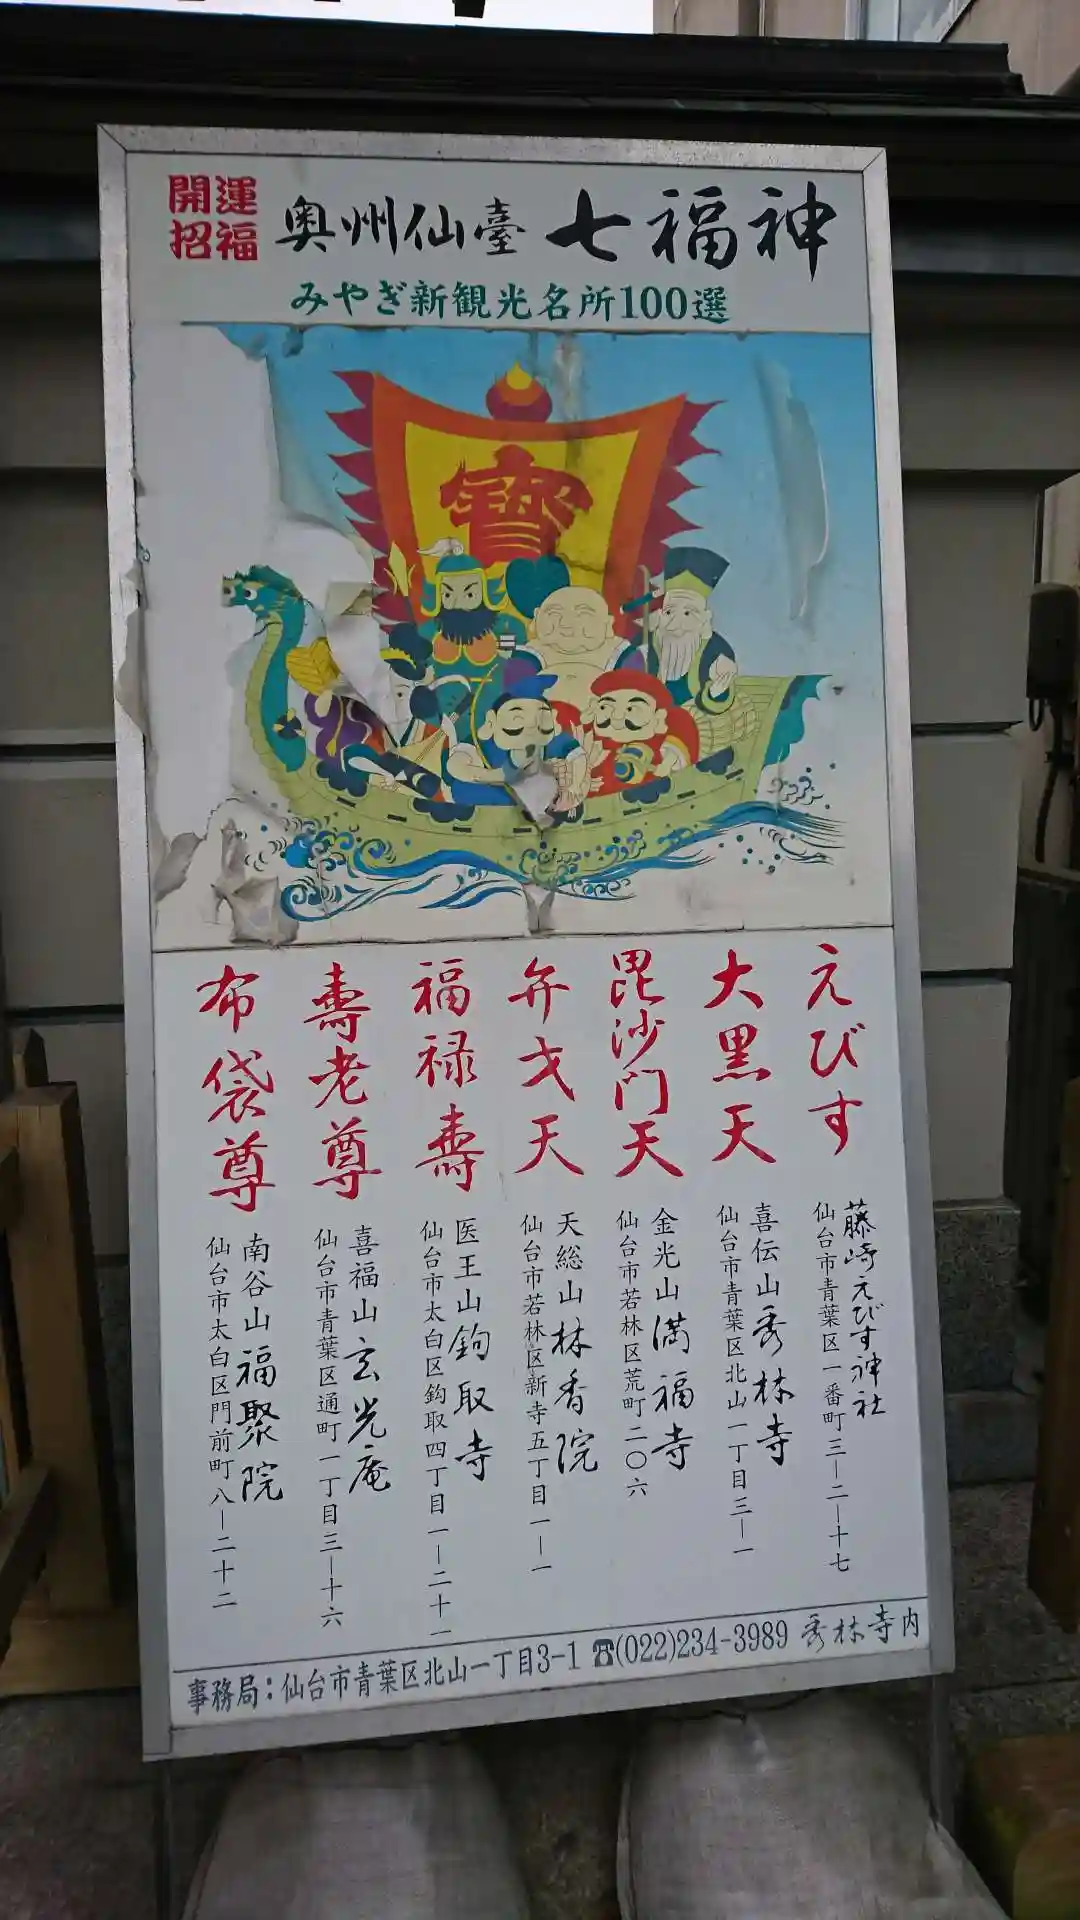 開運
招福
奥州仙臺 七福神
みやぎ新観光名所100選
寳
えびす
藤崎えびす神社
仙台市青葉区一番町三ー二ー十七
大黒天
喜伝山秀林寺
仙台市青葉区北山一丁目三ー一
毘沙門天
金光山満福寺
仙台市若林区荒町二〇六
弁才天
天総山林香院
仙台市若林区新寺五丁目一ー一
福禄壽
医王山鉤取寺
仙台市太白区鈎取四丁目一ー二十一
壽老尊
喜福山玄光庵
仙台市青葉区通町一丁目三ー十六
布袋尊
南谷山福聚院
仙台市太白区門前町八ー二十二
事務局：仙台市青葉区北山一丁目3-1 ☎(022)234-3989 秀林寺内